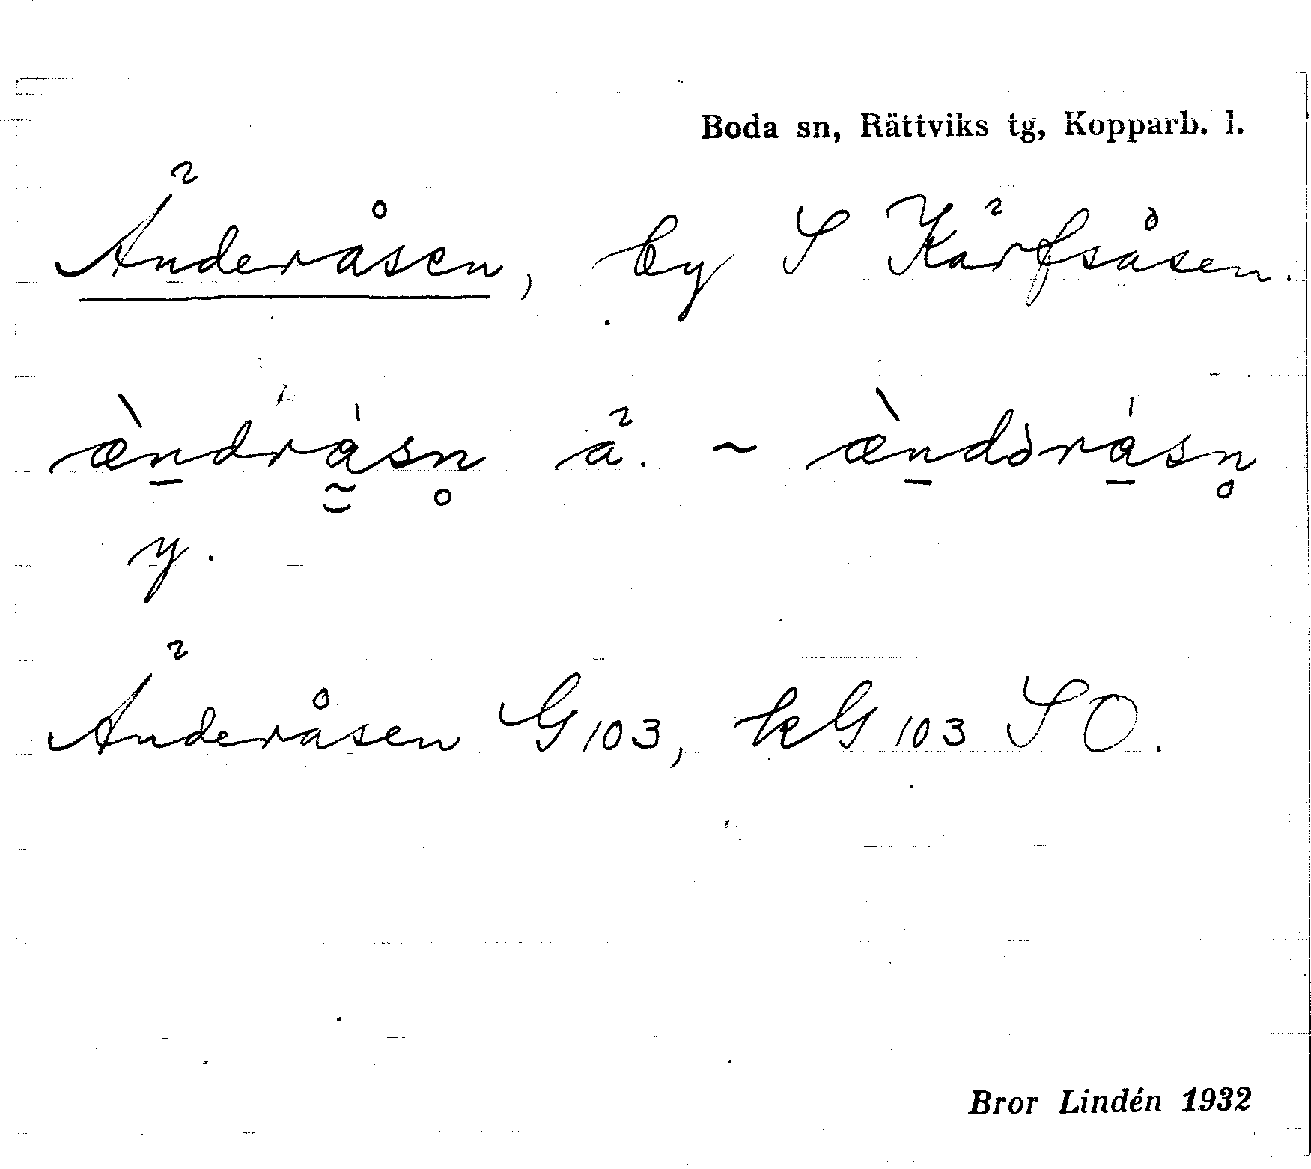 Boda sn, Rättviks tg, Kopparb. l.
Änderåsen, by S Kärfsåsen.
æ̀ndrásn ä. ~ æ̀ndərásn
y.
Änderåsen G 103, kG 103 SO.
Bror Lindén 1932